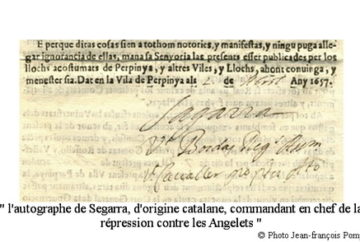 E perque ditas cosas sien a tothom notories, y manifestas, y ningu puga alle-
gar ignorancia de ellas, mana sa Senyoria las presents esser publicades per los
llochs acostumats de Perpinya, y altres Viles, y Llochs, ahont convinga, y
menester sia. Dat en la Vila de Perpinya als de Any 1657.
Segarra
" l'autographe de Segarra, d'origine catalane, commandant en chef de la
répression contre les Angelets "
© Photo Jean-françois Pom